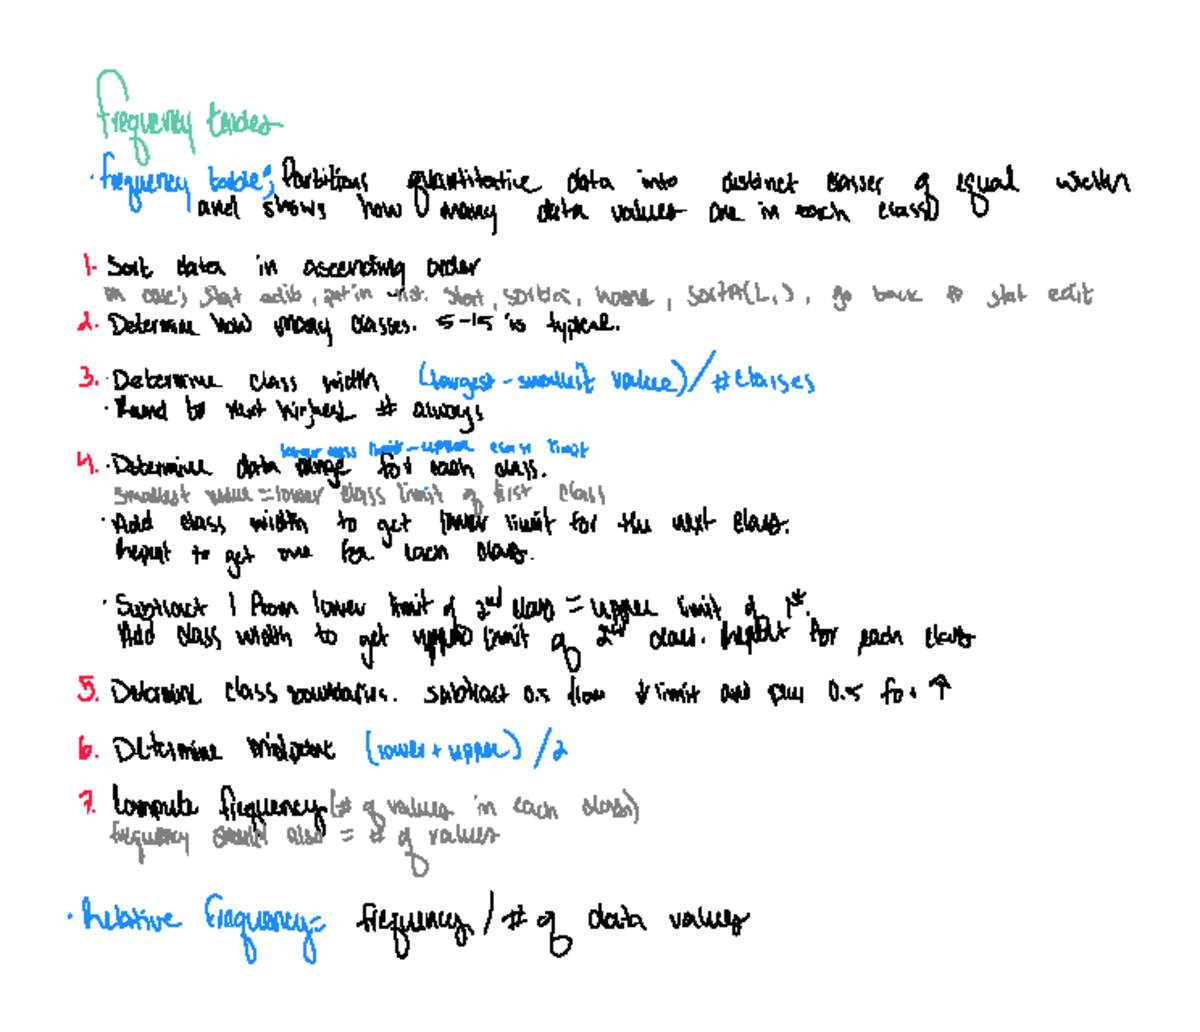 Frequency tables
· frequency table; Partitions quantitative data into distinct classes of equal width
and shows how many data values are in each class
1. Sort data in ascending order
on calc; stat edit, put in list. Start, sortlist, home, sortA(L,), go back to stat edit
2. Determine how many classes. 5-15 is typical.
3. · Determine class width (largest - smallest value) / # classes
· Round to next highest # always
lower class limit - upper class limit
4. · Determine data range for each class.
smallest value = lower class limit of first class
· Add class width to get lower limit for the next class.
repeat to get one for each class.
· Subtract 1 from lower limit of 2nd class = upper limit of 1st.
Add class width to get upper limit of 2nd class. repeat for each class
5. Determine class boundaries. subtract 0.5 from ↓ limit and plus 0.5 for ↑
6. Determine midpoint (lower + upper) / 2
7. Compute frequency (# of values in each class)
frequency should also = # of values
· Relative frequency = frequency / # of data values